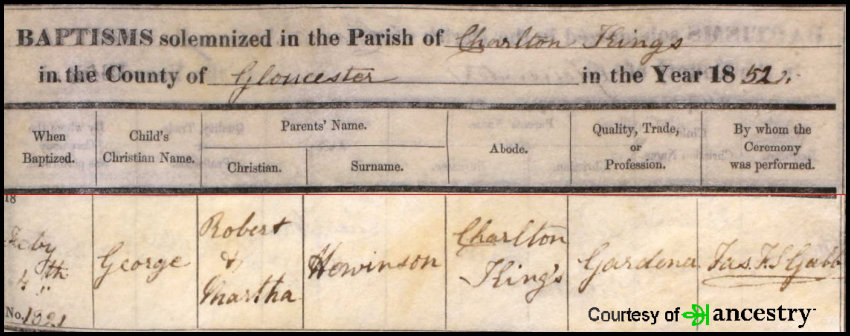 BAPTISMS solemnized in the Parish of Charlton Kings
in the County of Gloucester in the Year 1852.
When Baptized.
Child's Christian Name.
Parents' Name.
Christian.
Surname.
Abode.
Quality, Trade, or Profession.
By whom the Ceremony was performed.
18
Feby
th
No. 1021
George
Robert
&
Martha
Hewinson
Charlton
King's
Gardener
Jas. F. S. Gabb
Courtesy of ancestry